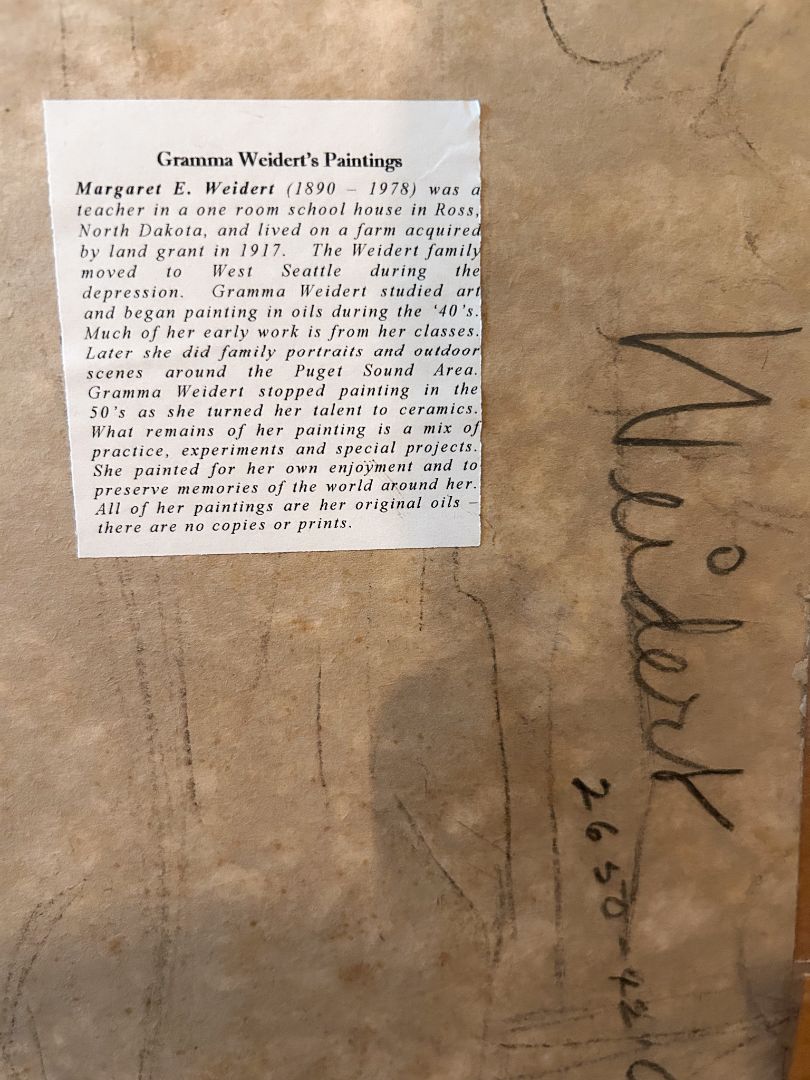 Gramma Weidert's Paintings
Margaret E. Weidert (1890 – 1978) was a
teacher in a one room school house in Ross,
North Dakota, and lived on a farm acquired
by land grant in 1917. The Weidert family
moved to West Seattle during the
depression. Gramma Weidert studied art
and began painting in oils during the ‘40’s.
Much of her early work is from her classes.
Later she did family portraits and outdoor
scenes around the Puget Sound Area.
Gramma Weidert stopped painting in the
50’s as she turned her talent to ceramics.
What remains of her painting is a mix of
practice, experiments and special projects.
She painted for her own enjoyment and to
preserve memories of the world around her.
All of her paintings are her original oils –
there are no copies or prints.
Weidert
2650-42